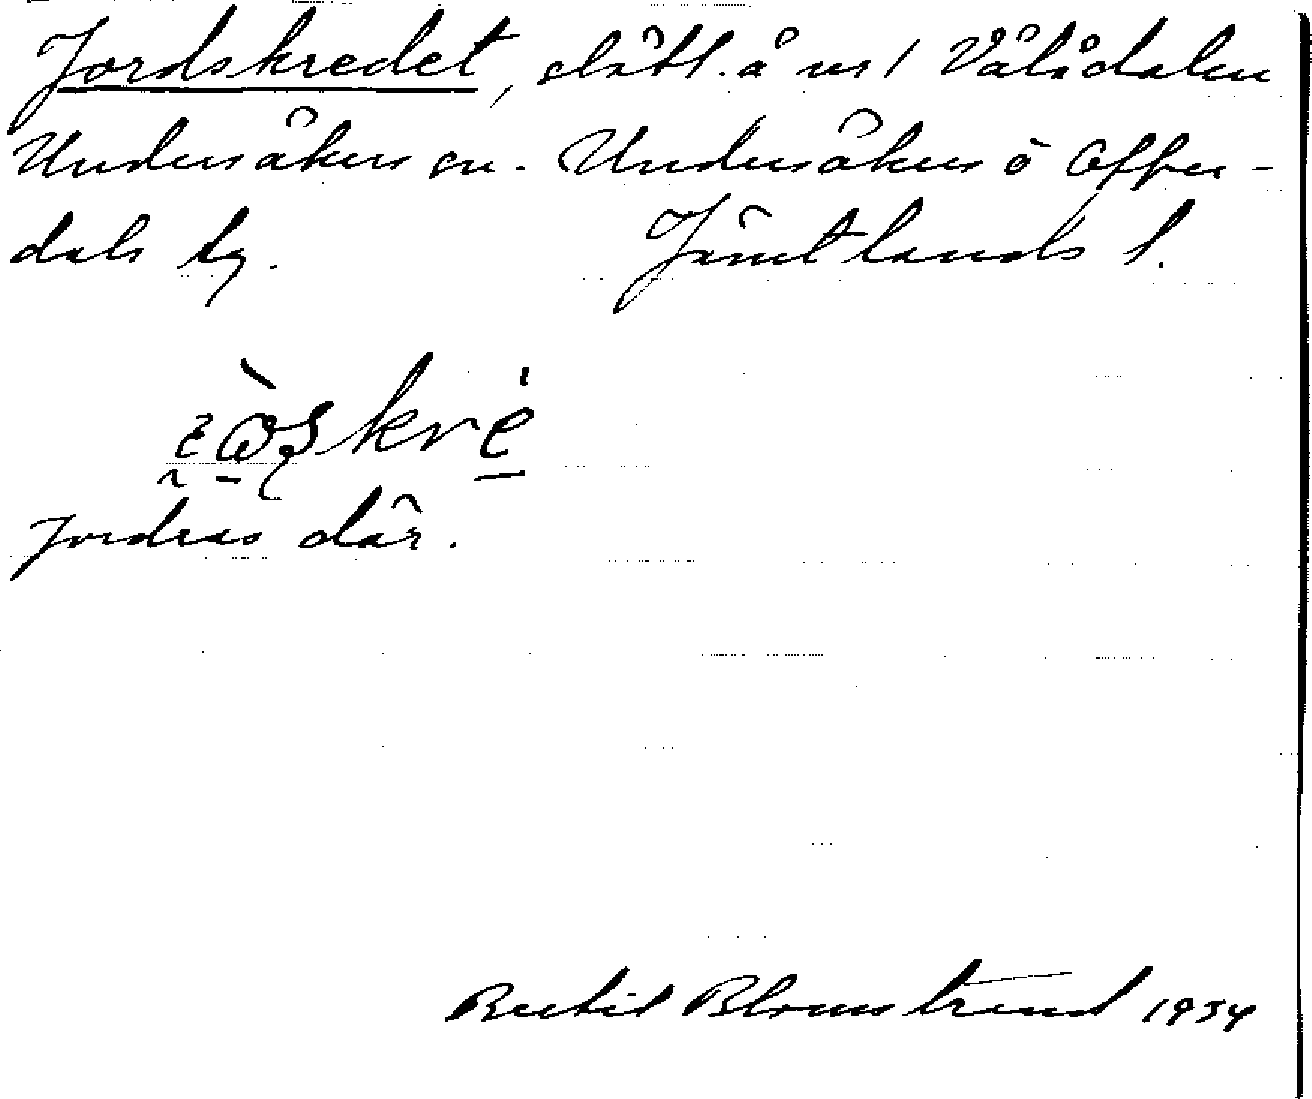 Jordskredet, slått. å ns 1 Vålådalen
Undersåkers sn. Undersåkers o Offer-
dals tg. Jämtlands l.
Jordras där.
Bertil Blomstrand 1934